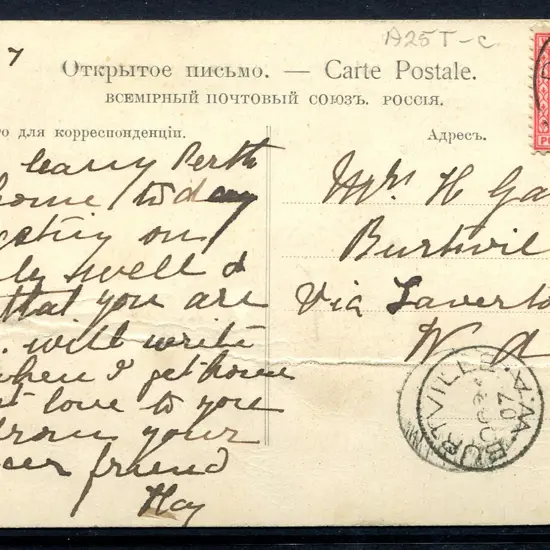 A25T-c
7
Открытое письмо. — Carte Postale.
ВСЕМІРНЫЙ ПОЧТОВЫЙ СОЮЗЪ. РОССІЯ.
о для корреспонденціи.
Адресъ.
Perth
home today
on
ly well &
that you are
. will write
when I get home
t love to you
from your
friend
Hay
H Ga
Burtvil
Via Laverto
W A
BURTVILLE W.A.
07